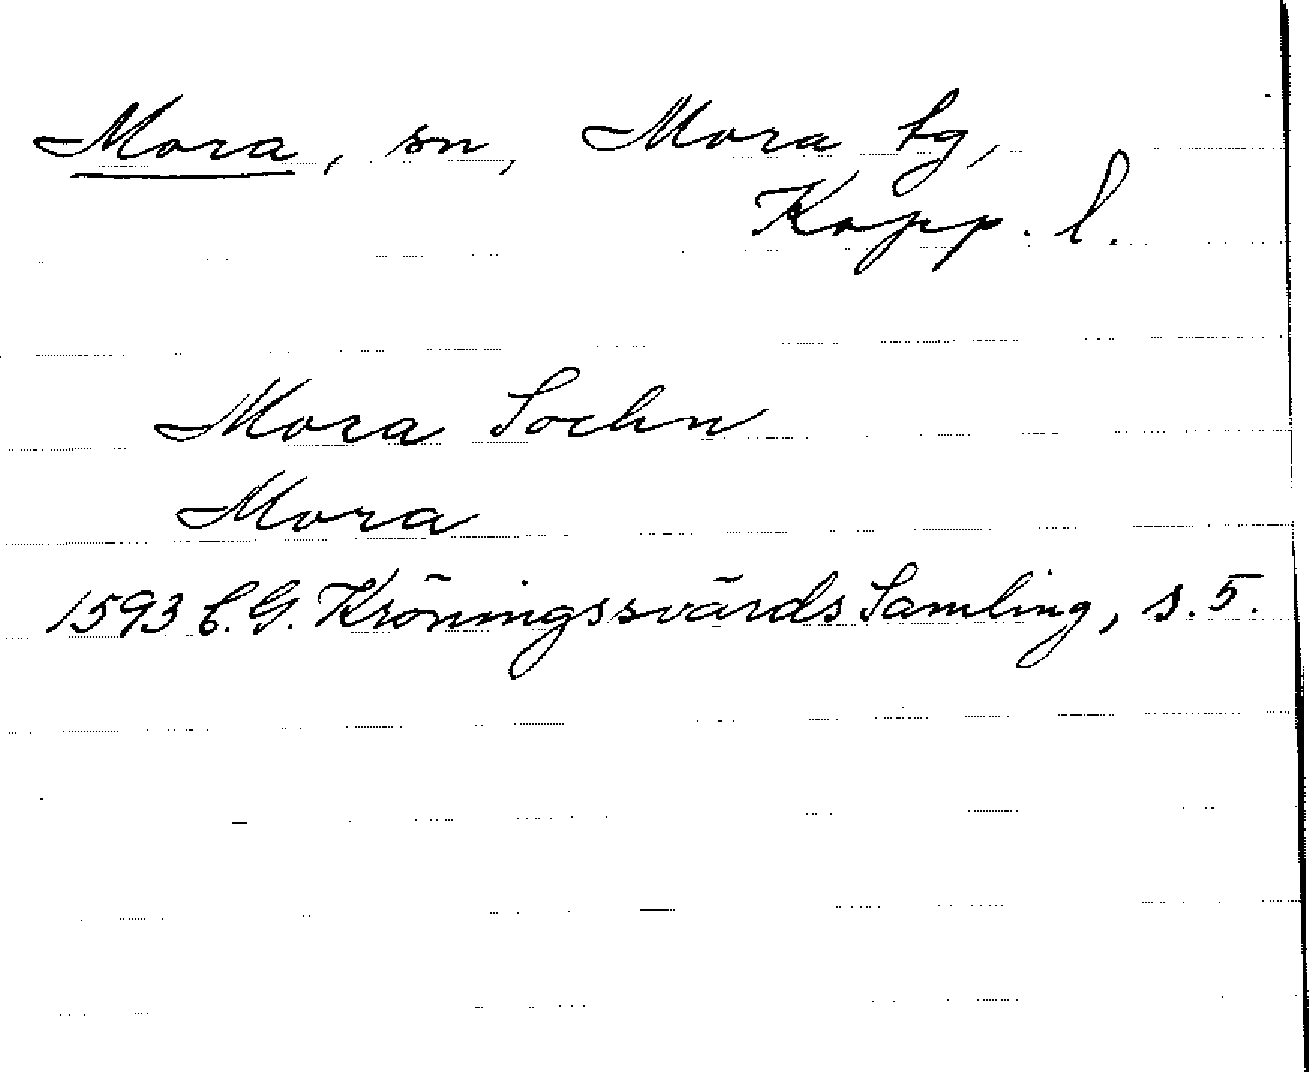 Mora, sn, Mora tg,
Kopp. l.
Mora Sochn
Mora
1593 C. G. Kröningssvärds Samling, s. 5.